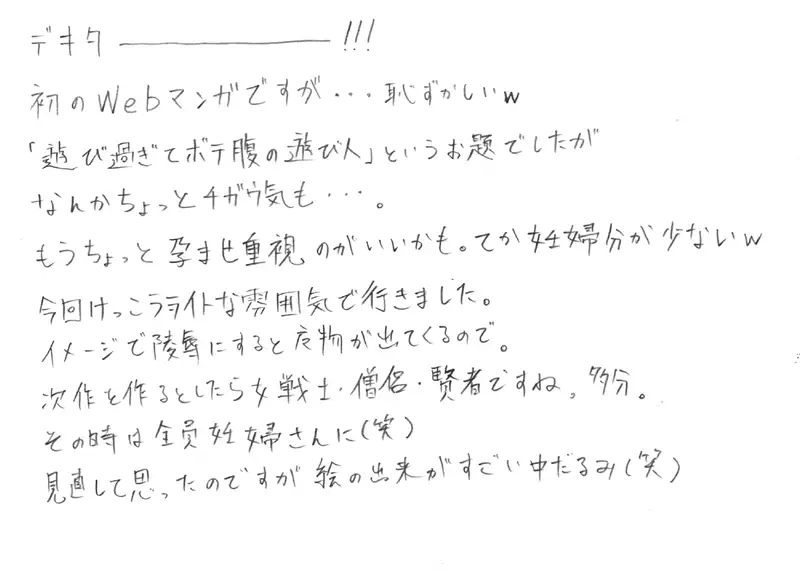 デキタ――――――!!!
初のWebマンガですが・・・恥ずかしいw
「遊び過ぎてボテ腹の遊び人」というお題でしたが
なんかちょっとチガウ気も・・・。
もうちょっと孕ませ重視のがいいかも。てか妊婦分が少ないw
今回けっこうライトな雰囲気で行きました。
イメージで陵辱にすると危物が出てくるので。
次作を作るとしたら女戦士・僧侶・賢者ですね。多分。
その時は全員妊婦さんに(笑)
見直して思ったのですが絵の出来がすごい中だるみ(笑)